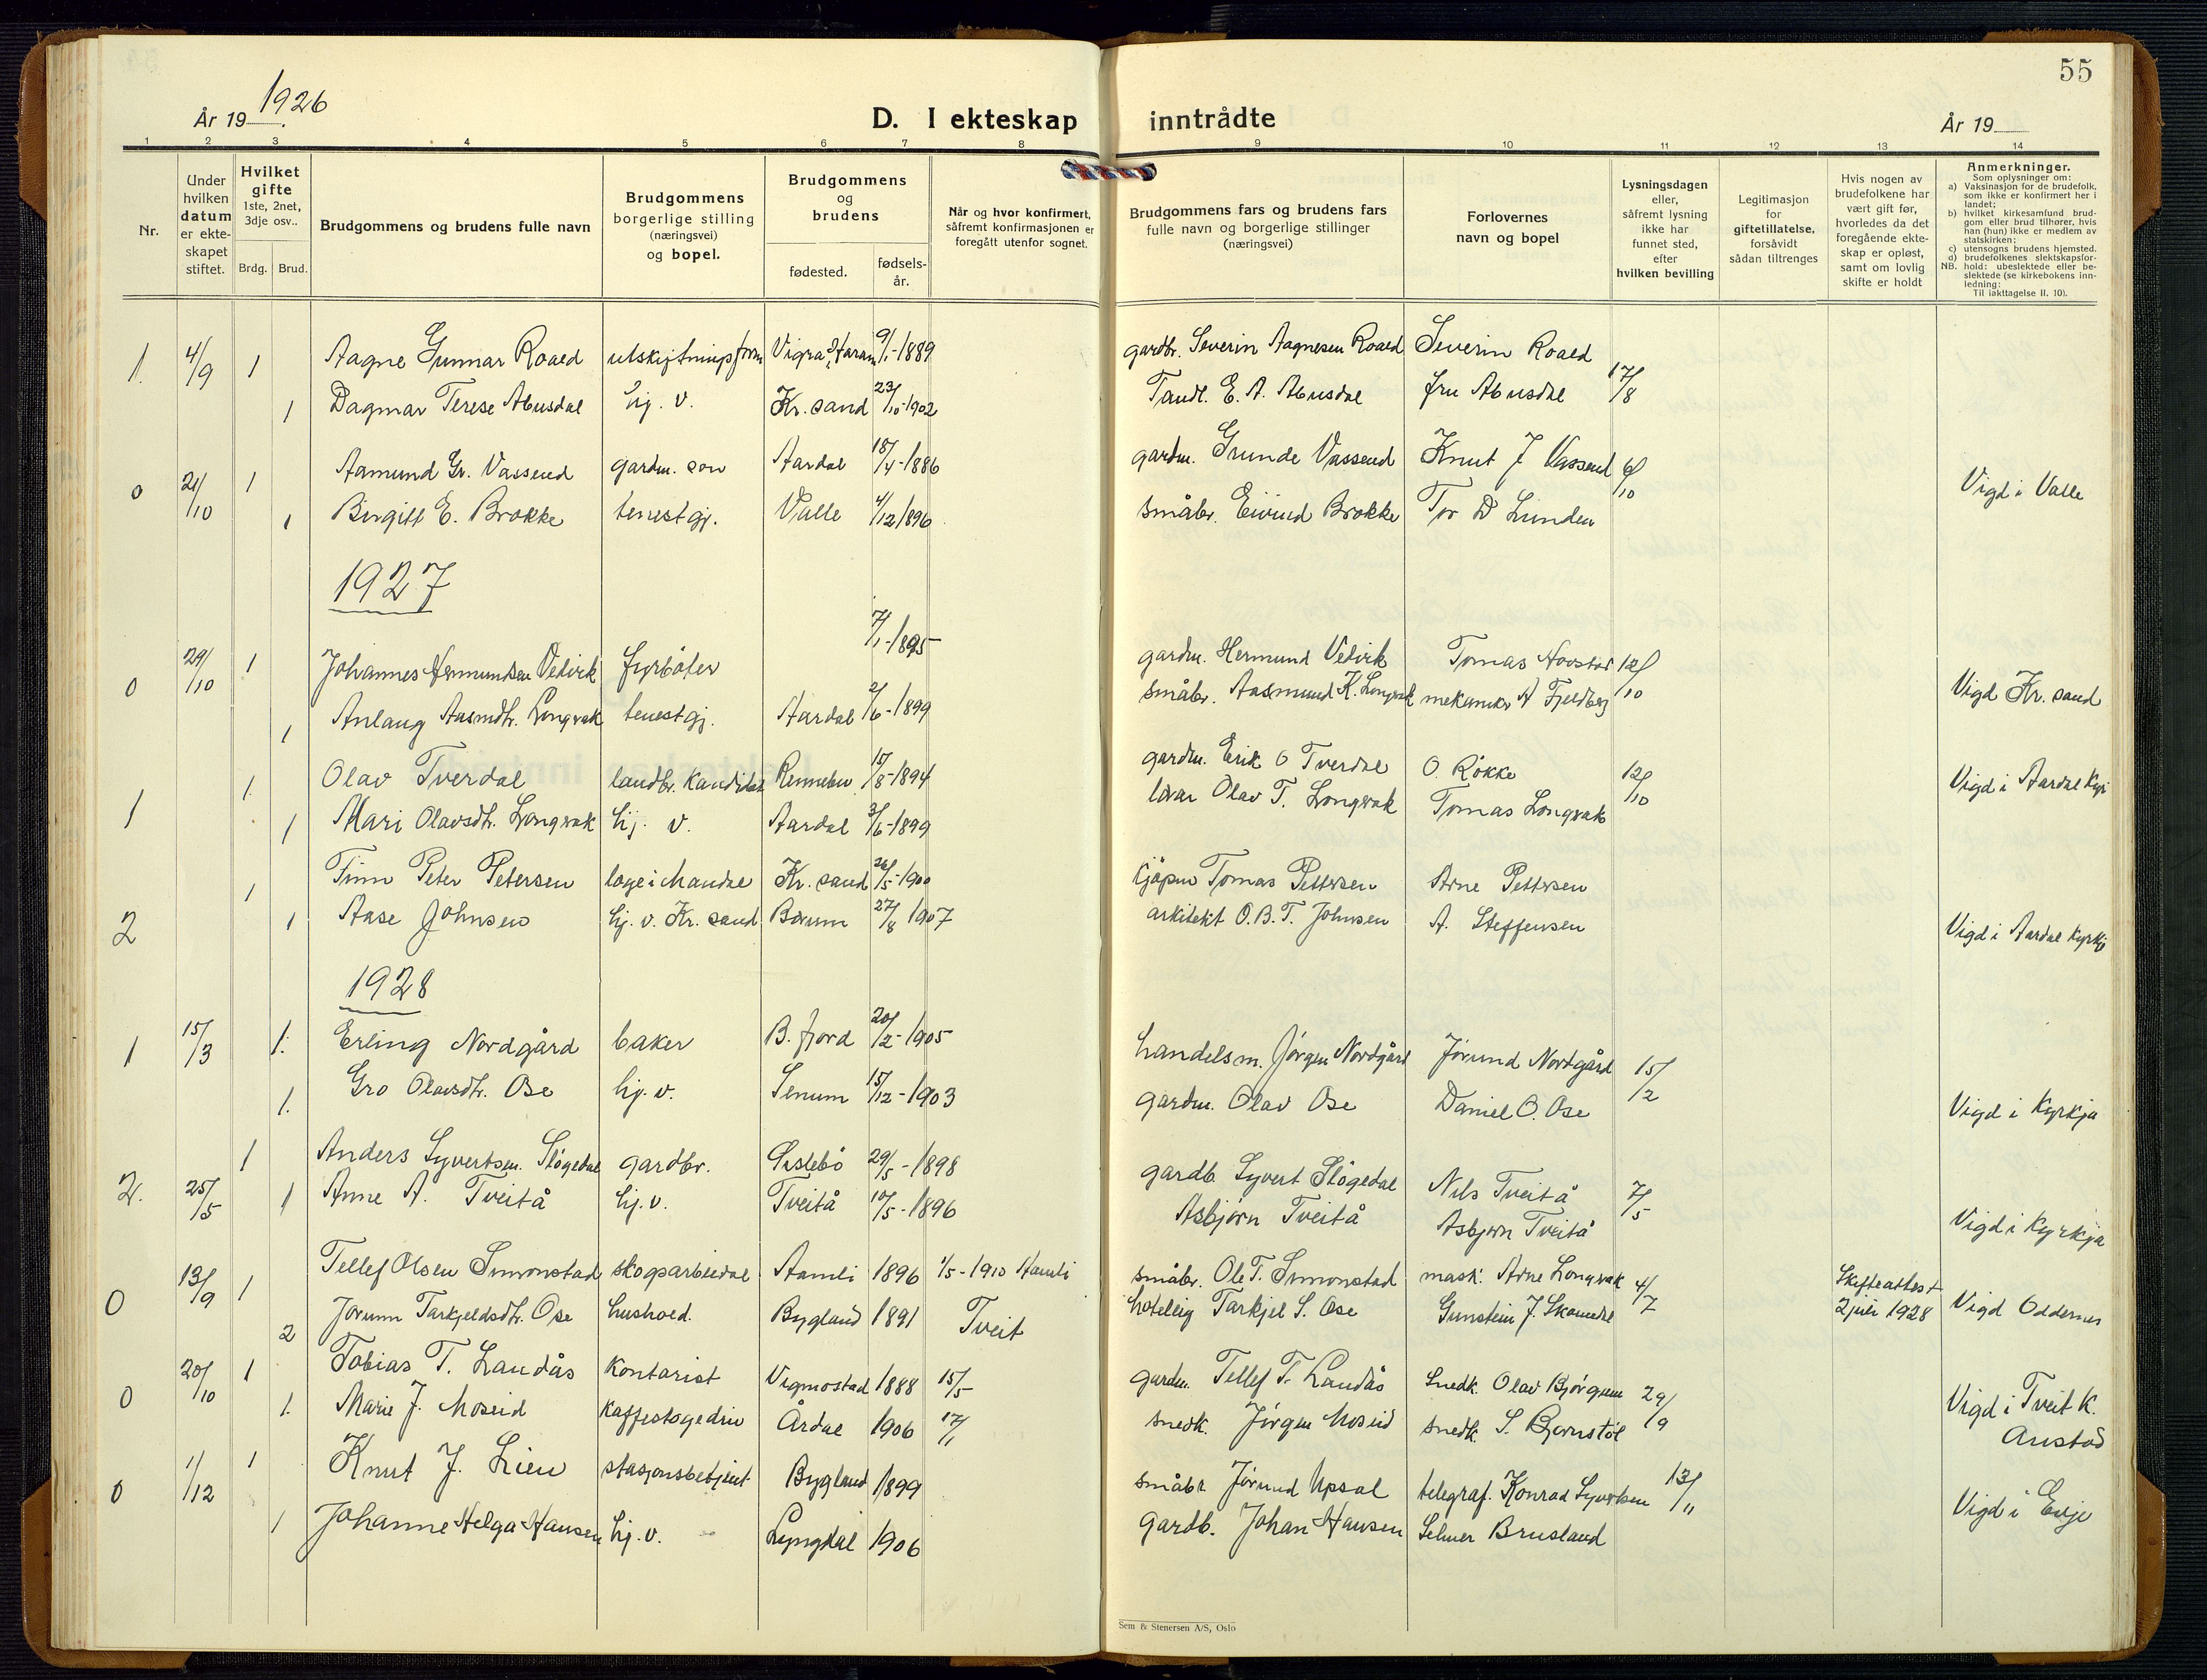 55
År 19 1926
D. I ekteskap inntrådte
År 19
1 2 3 4 5 6 7 8 9 10 11 12 13 14
Nr.
Under hvilken datum er ekte-skapet stiftet.
Hvilket gifte 1ste, 2net, 3dje osv..
Brdg. Brud.
Brudgommens og brudens fulle navn
Brudgommens borgerlige stilling (næringsvei) og bopel.
Brudgommens og brudens
fødested. fødsels-år.
Når og hvor konfirmert, såfremt konfirmasjonen er foregått utenfor sognet.
Brudgommens fars og brudens fars fulle navn og borgerlige stillinger (næringsvei)
Forlovernes navn og bopel
Lysningsdagen eller, såfremt lysning ikke har funnet sted, efter hvilken bevilling
Legitimasjon for giftetillatelse, forsåvidt sådan tiltrenges
Hvis nogen av brudefolkene har vært gift før, hvorledes da det foregående ekte-skap er opløst, samt om lovlig skifte er holdt
Anmerkninger.
Som oplysninger om:
a) Vaksinasjon for de brudefolk, som ikke er konfirmert her i landet;
b) hvilket kirkesamfund brud-gom eller brud tilhører, hvis han (hun) ikke er medlem av statskirken;
c) utensogns brudens hjemsted.
d) brudefolkenes slektskapsfor-hold: ubeslektede eller be-slektede (se kirkebokens inn-ledning:
NB. Til iakttagelse II. 10).
1. 4/9 1 Aagne Gunnar Roald utskiftningsform Vigra, Haram 9/1-1889 gardbr. Severin Aagnesen Roald Severin Roald 17/8
1 Dagmar Terese Abusdal hj. v. Kr. sand 23/10-1902 Tandl. E. A. Abusdal fru Abusdal
0 21/10 1 Aamund Gr. Vassend gardm. son Aardal 18/4-1886 gardm. Grunde Vassend Knut J Vassend 6/10 Vigd i Valle
1 Birgitt E. Brokke tenestgj. Valle 4/12 1896 småbr. Eivind Brokke Tor D Lunden
1927
0 29/10 1 Johannes Hermundsen Vedvik fyrbøter 7/1-1895 gardm. Hermund Vedvik Tomas 12/10 Vigd Kr. sand
1 Anlaug Aasmdtr. Longvak tenestgj. Aardal 2/6-1899 småbr. Aasmund K. Longvak mekanikr A Fjeldberg
1 1. Olav Tverdal landbr. kandidat Rennebu 15/8-1894 gardm. Erik O Tverdal O. Røkke 12/10 Vigd i Aardal Kyr
1 Mari Olavsdtr. Longvak hj. v. Aardal 3/6-1899 lærar Olav T. Longvak Tomas Longvak
2 1 Finn Peter Petersen loge i Mandal Kr. sand 26/5-1900 kjøpm Tomas Pettersen Arne Pettersen
1 Aase Johnsen hj. v. Kr. sand Bærum 27/8 1907 arkitekt O. B. T. Johnsen A. Steffensen Vigd i Aardal Kyrkj
1928
1 15/3 1. Erling Nordgård baker B. fjord 20/2-1905 handelsm. Jørgen Nordgård Jørund Nordgård 15/2
1. Gro Olavsdtr. Ose hj. v. Senum 15/12-1903 gardm. Olav Ose Daniel O. Ose Vigd i Kyrkja
2. 25/5 1 Anders Syvertsen Sløgedal gardbr. Gislebø 29/5-1898 gardb. Syvert Sløgedal Nils Tveitå 7/5
1 Anne A. Tveitå hj. v. Tveitå 10/5-1896 Asbjørn Tveitå Asbjørn Tveitå Vigd i Kyrkja
0 13/9 1 Tellef Olsen Simonstad skogsarbeidar Aamli 1896 1/5-1910 Aamli småbr. Ole T. Simonstad mask. Arne Longvak 4/7 Skifteattest 2 juli 1928 Vigd Oddernes
2 Jorunn Tarkjeldsdtr. Ose hushold. Bygland 1891 Tveit hotelleig Tarkjel S. Ose Gunstein J. Skomedal
0 20/10 1 Tobias T. Landås kontorist Vigmostad 1888 15/5 gardm. Tellef T. Landås Snedk. Olav Bjørgum 29/9 Vigd i Tveit K.
1. Marie J. Moseid kaffestogedriv Årdal 1906 17/1 snedk. Jørgen Moseid snedk. S. Bjørnstøl Austad
0 1/12 1 Knut J. Lien stasjonsbetjent Bygland 1899 småbr. Jørund Upsal telegraf. Konrad Syvertsen 13/11 Vigd i Evje
1 Johanne Helga Hansen hj. v. Lyngdal 1906 gardb. Johan Hansen Selmer Brusland
Sem & Stenersen A/S, Oslo